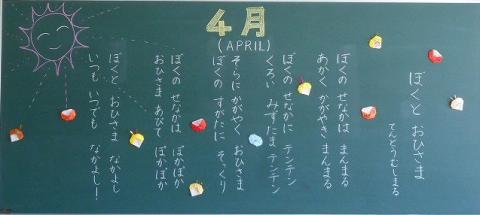 4月
(APRIL)
ぼくと おひさま
てんとうむしまる
ぼくの せなかは まんまる
あかく かがやき まんまる
ぼくの せなかに テンテン
くろい みずたま テンテン
そらに かがやく おひさま
ぼくの すがたに そっくり
ぼくの せなかは ぽかぽか
おひさま あびて ぽかぽか
ぼくと おひさま なかよし
いつも いつでも なかよし!